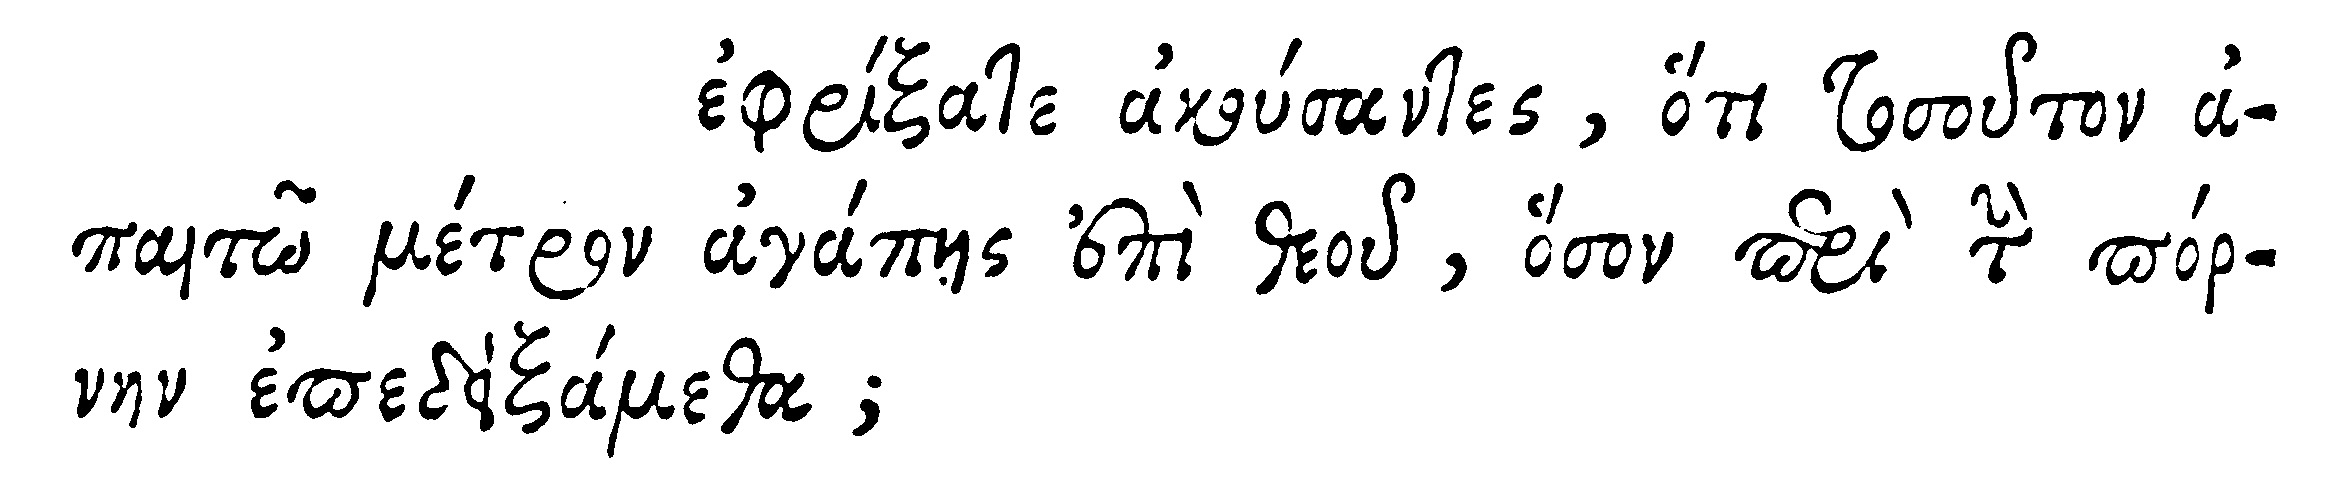 ἐφρίξατε ἀκούσαντες, ὅτι τοσοῦτον ἀ-
παιτῶ μέτρον ἀγάπης ἐπὶ θεοῦ, ὅσον περὶ τὴν πόρ-
νην ἐπεδειξάμεθα;